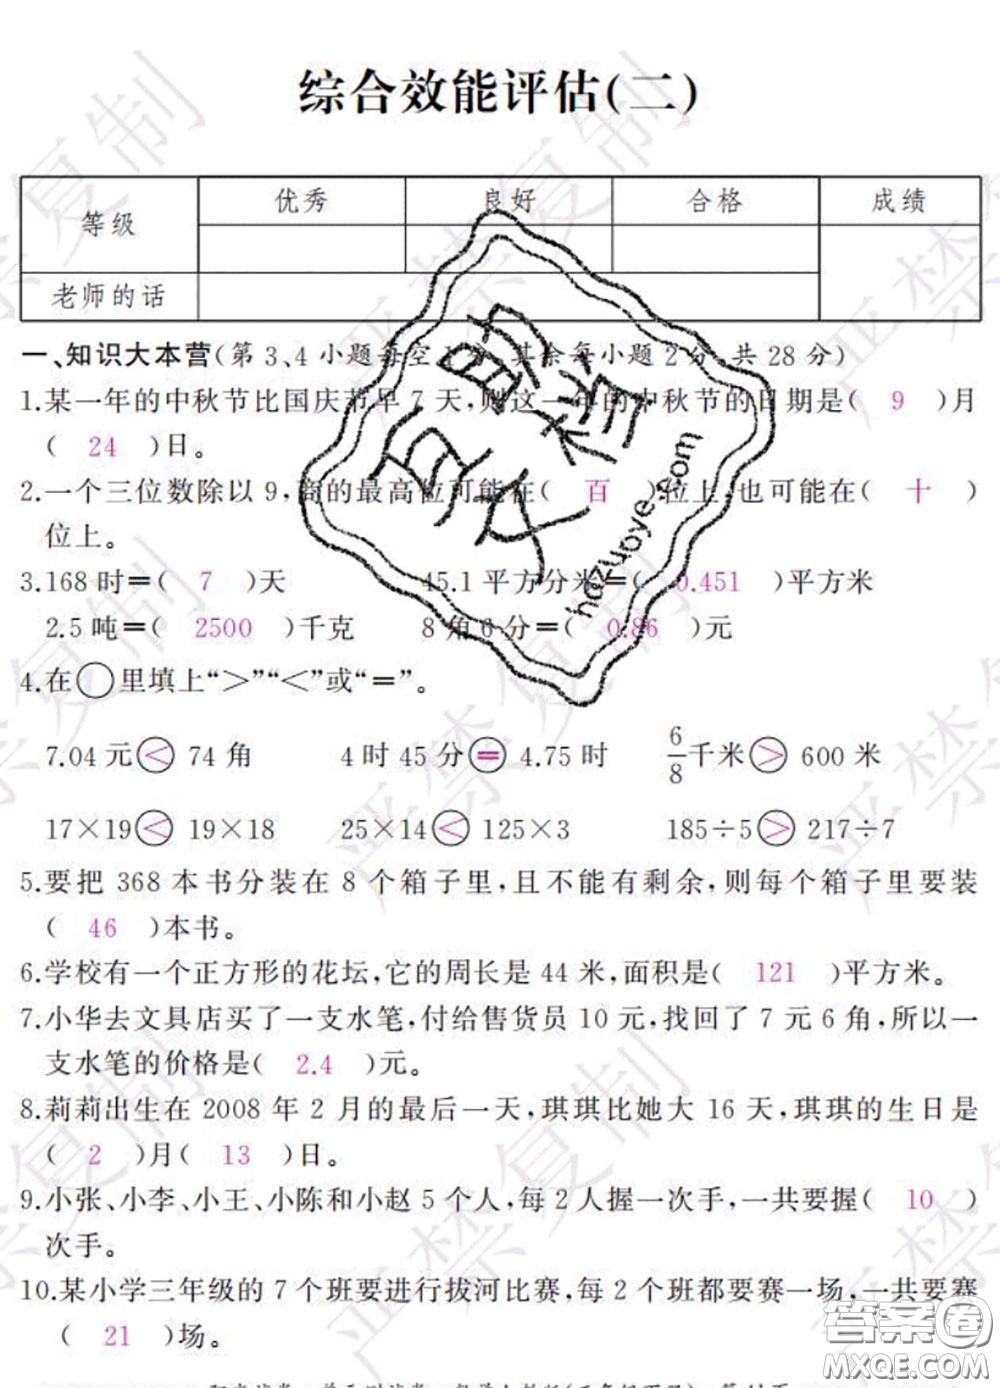 综合效能评估(二)
等级 优秀 良好 合格 成绩
老师的话
一、知识大本营(第3、4小题每空1分,其余每小题2分,共28分)
1.某一年的中秋节比国庆节早7天,则这一年的中秋节的日期是( 9 )月
( 24 )日。
2.一个三位数除以9,商的最高位可能在( 百 )位上,也可能在( 十 )
位上。
3.168时=( 7 )天 45.1平方分米=( 0.451 )平方米
2.5吨=( 2500 )千克 8角6分=( 0.86 )元
4.在○里填上“>”“<”或“=”。
7.04元<74角 4时45分=4.75时 6/8千米>600米
17×19<19×18 25×14<125×3 185÷5>217÷7
5.要把368本书分装在8个箱子里,且不能有剩余,则每个箱子里要装
( 46 )本书。
6.学校有一个正方形的花坛,它的周长是44米,面积是( 121 )平方米。
7.小华去文具店买了一支水笔,付给售货员10元,找回了7元6角,所以一
支水笔的价格是( 2.4 )元。
8.莉莉出生在2008年2月的最后一天,琪琪比她大16天,琪琪的生日是
( 2 )月( 13 )日。
9.小张、小李、小王、小陈和小赵5个人,每2人握一次手,一共要握( 10 )
次手。
10.某小学三年级的7个班要进行拔河比赛,每2个班都要赛一场,一共要赛
( 21 )场。
严禁复制
hazuoye.com
答案圈
MXQE.COM